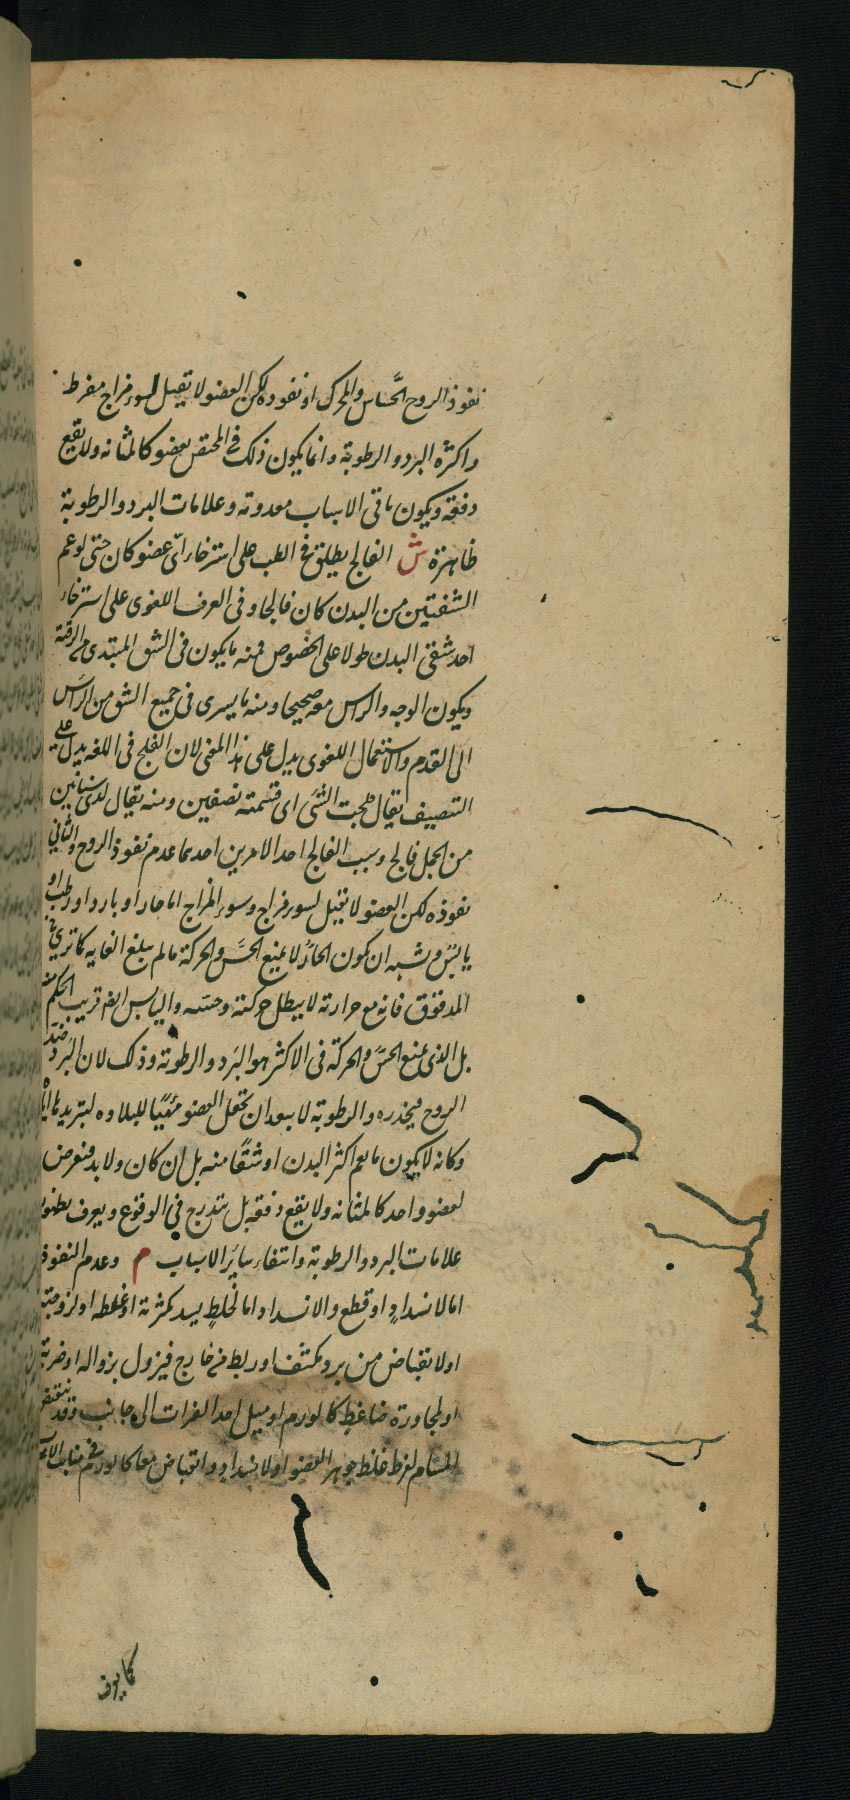 نفوذ الروح الحساس والمحرك او نفوذه لكن العضو لا يقبل لسوء مزاج مفرط
واكثره البرد والرطوبة وانما يكون ذلك فى المختص بعضو كالمثانه ولا يقع
دفعة ويكون باقى الاسباب معدومة وعلامات البرد والرطوبة
ظاهرة ش الفالج يطلق فى الطب على استرخاء اى عضو كان حتى لو عم
الشقين من البدن كان فالجا وفى العرف اللغوى على استرخاء
احد شقى البدن طولا على الخصوص فمنه ما يكون فى الشق المبتدى من الرقبة
ويكون الوجه والراس معه صحيحا ومنه ما يسرى فى جميع الشق من الراس
الى القدم والاستعمال اللغوى يدل على هذا المعنى لان الفلج فى اللغه يدل على
التنصيف يقال فلجت الشئ اى قسمته نصفين ومنه يقال لذى سنامين
من الجمل فالج وسبب الفالج احد الامرين احدهما عدم نفوذ الروح والثانى
نفوذه لكن العضو لا يقبل لسوء مزاج وسوء المزاج اما حار او بارد او رطب او
يابس ويشبه ان يكون الحار لا يمنع الحس والحركة ما لم يبلغ الغايه كما ترى فى
المدقوق فانه مع حرارته لا يبطل حركته وحسه واليابس ايضا قريب الحكم منه
بل الذى يمنع الحس والحركة فى الاكثر هو البرد والرطوبة وذلك لان البرد ضد
الروح فيخدره والرطوبة لا يبعد ان تجعل العضو مهيئا للبلاده لتبريدها اياه
وكانه لا يكون ما يعم اكثر البدن او شقا منه بل ان كان ولا بد فيعرض
لعضو واحد كالمثانه ولا يقع دفعة بل يتدرج فى الوقوع ويعرف بظهور
علامات البرد والرطوبة وانتفاء ساير الاسباب م وعدم النفوذ
اما لانسداد او قطع والانسداد اما لخلط يسد بكثرته او غلظه او لزوجته
او لانقباض من برد مكثف او ربط من خارج فيزول بزواله او ضربة
او لمجاورة ضاغط كالورم او ميل احد الفقرات الى جانب وقد ينقبض
المسام لفرط غلظ جوهر العضو او لانسداد وانقباض معا كالورم فى منابت الاعـ
كما يوف